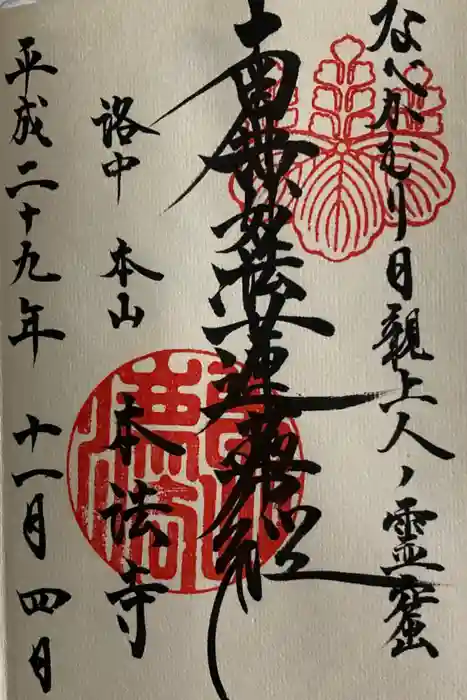 なべかむり日親上人ノ霊窟
南無妙法蓮華経
洛中 本山 本法寺
平成二十九年 十一月 四日